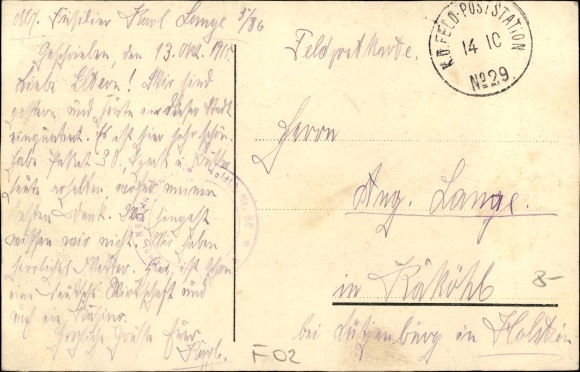 Abs. Füsilier Karl Lange 5/86
Geschrieben den 13. Okt. 191
Liebe Eltern! Wir sind
gestern und heute in dieser Stadt
einquartiert. Es ist hier sehr schön.
habe Paket 30, Speck u.
heute erhalten, wofür meinen
besten Dank. Wo's hingeht
wissen wir nicht. Wir haben
herrliches Wetter. Hier ist schon
eine deutsche Wirtschaft und
auch ein Kasino.
Herzliche Grüße Euer
Karl.
Feldpostkarte.
K.D. FELD-POSTSTATION
14 10
No 29
Herrn
Aug. Lange.
in Kaköhl
bei Lütjenburg in Holstein
8-
F02